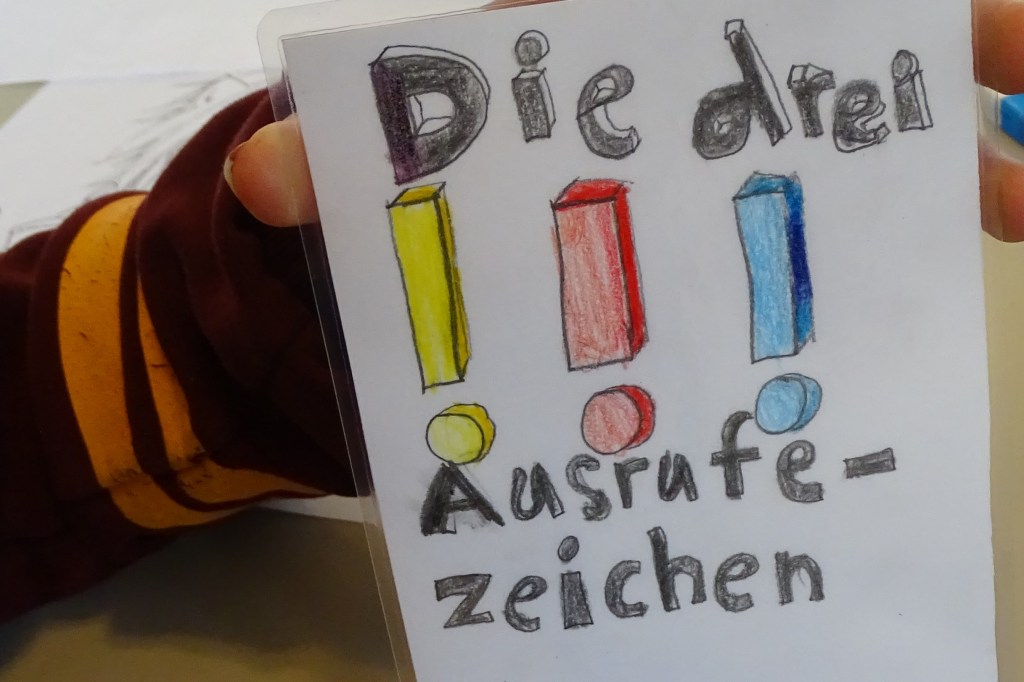 Die drei
!!!
Ausrufe-
zeichen